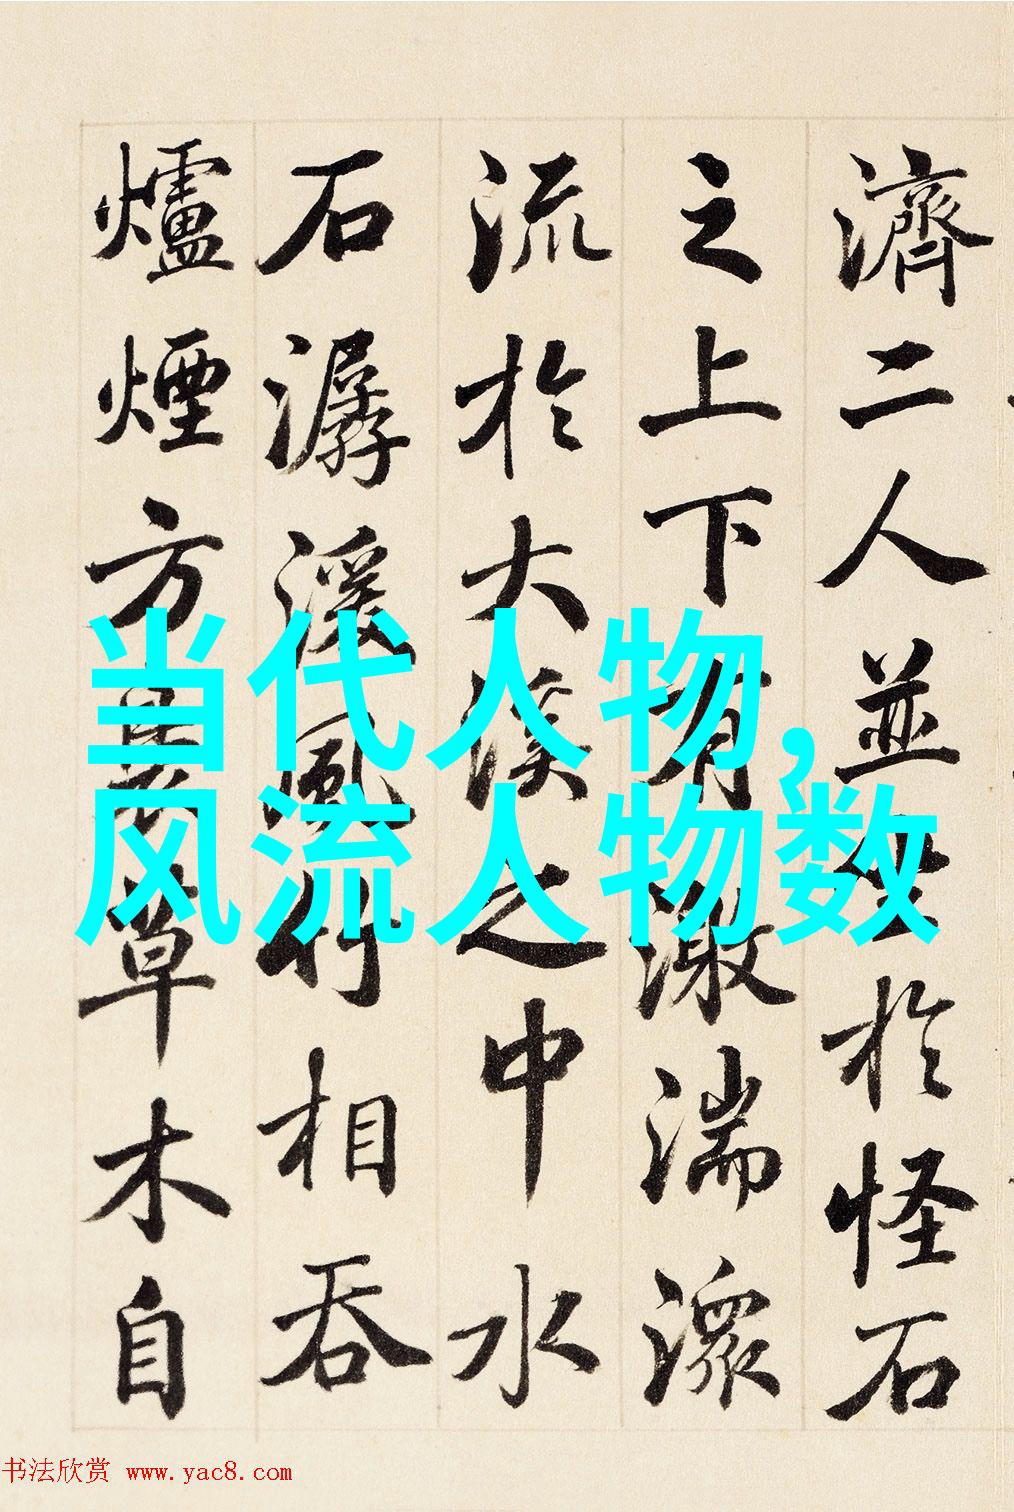 濟二人並坐於怪石
之上下有激湍潨
流於大溪之中水
石潺湲風竹相吞
爐煙方裊草木自
当代人物,
风流人物数
书法欣赏 www.yac8.com